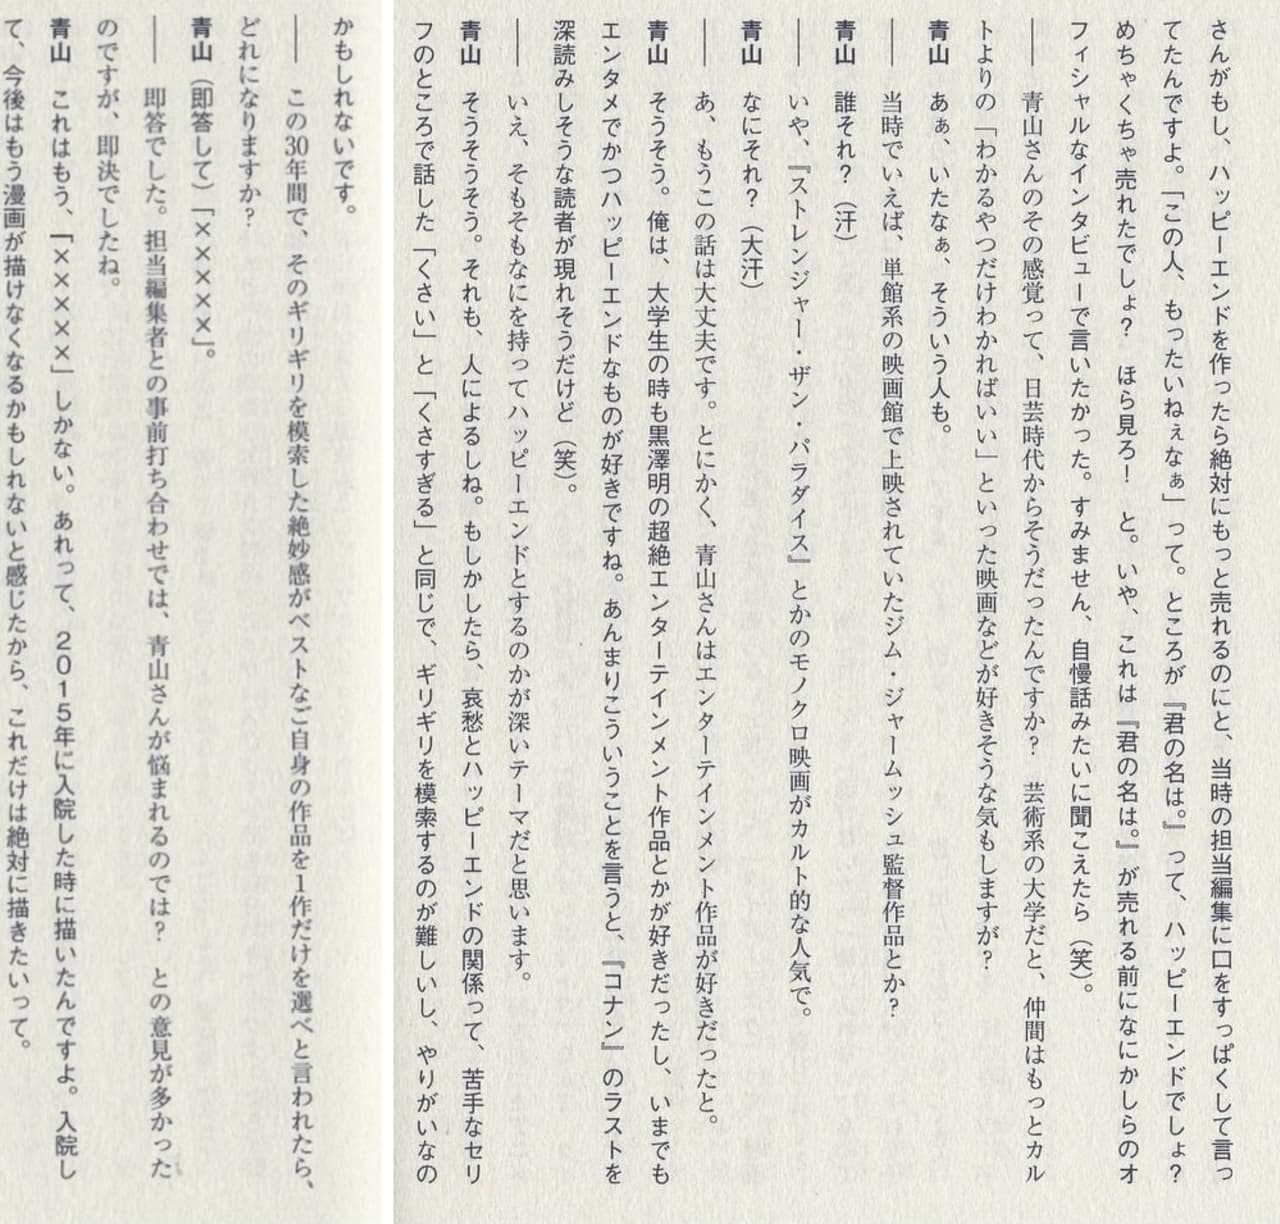 さんがもし、ハッピーエンドを作ったら絶対にもっと売れるのにと、当時の担当編集に口をすっぱくして言っ
てたんですよ。「この人、もったいねぇなぁ」って。ところが『君の名は。』って、ハッピーエンドでしょ？
めちゃくちゃ売れたでしょ？　ほら見ろ！　と。いや、これは『君の名は。』が売れる前になにかしらのオ
フィシャルなインタビューで言いたかった。すみません、自慢話みたいに聞こえたら（笑）。
――　青山さんのその感覚って、日芸時代からそうだったんですか？　芸術系の大学だと、仲間はもっとカル
トよりの「わかるやつだけわかればいい」といった映画などが好きそうな気もしますが？
青山　あぁ、いたなぁ、そういう人も。
――　当時でいえば、単館系の映画館で上映されていたジム・ジャームッシュ監督作品とか？
青山　誰それ？（汗）
――　いや、『ストレンジャー・ザン・パラダイス』とかのモノクロ映画がカルト的な人気で。
青山　なにそれ？（大汗）
――　あ、もうこの話は大丈夫です。とにかく、青山さんはエンターテインメント作品が好きだったと。
青山　そうそう。俺は、大学生の時も黒澤明の超絶エンターテインメント作品とかが好きだったし、いまでも
エンタメでかつハッピーエンドなものが好きですね。あんまりこういうことを言うと、『コナン』のラストを
深読みしそうな読者が現れそうだけど（笑）。
――　いえ、そもそもなにを持ってハッピーエンドとするのかが深いテーマだと思います。
青山　そうそうそう。それも、人によるしね。もしかしたら、哀愁とハッピーエンドの関係って、苦手なセリ
フのところで話した「くさい」と「くさすぎる」と同じで、ギリギリを模索するのが難しいし、やりがいなの
かもしれないです。
――　この30年間で、そのギリギリを模索した絶妙感がベストなご自身の作品を1作だけを選べと言われたら、
どれになりますか？
青山（即答して）「×××××」。
――　即答でした。担当編集者との事前打ち合わせでは、青山さんが悩まれるのでは？　との意見が多かった
のですが、即決でしたね。
青山　これはもう、「×××××」しかない。あれって、2015年に入院した時に描いたんですよ。入院し
て、今後はもう漫画が描けなくなるかもしれないと感じたから、これだけは絶対に描きたいって。